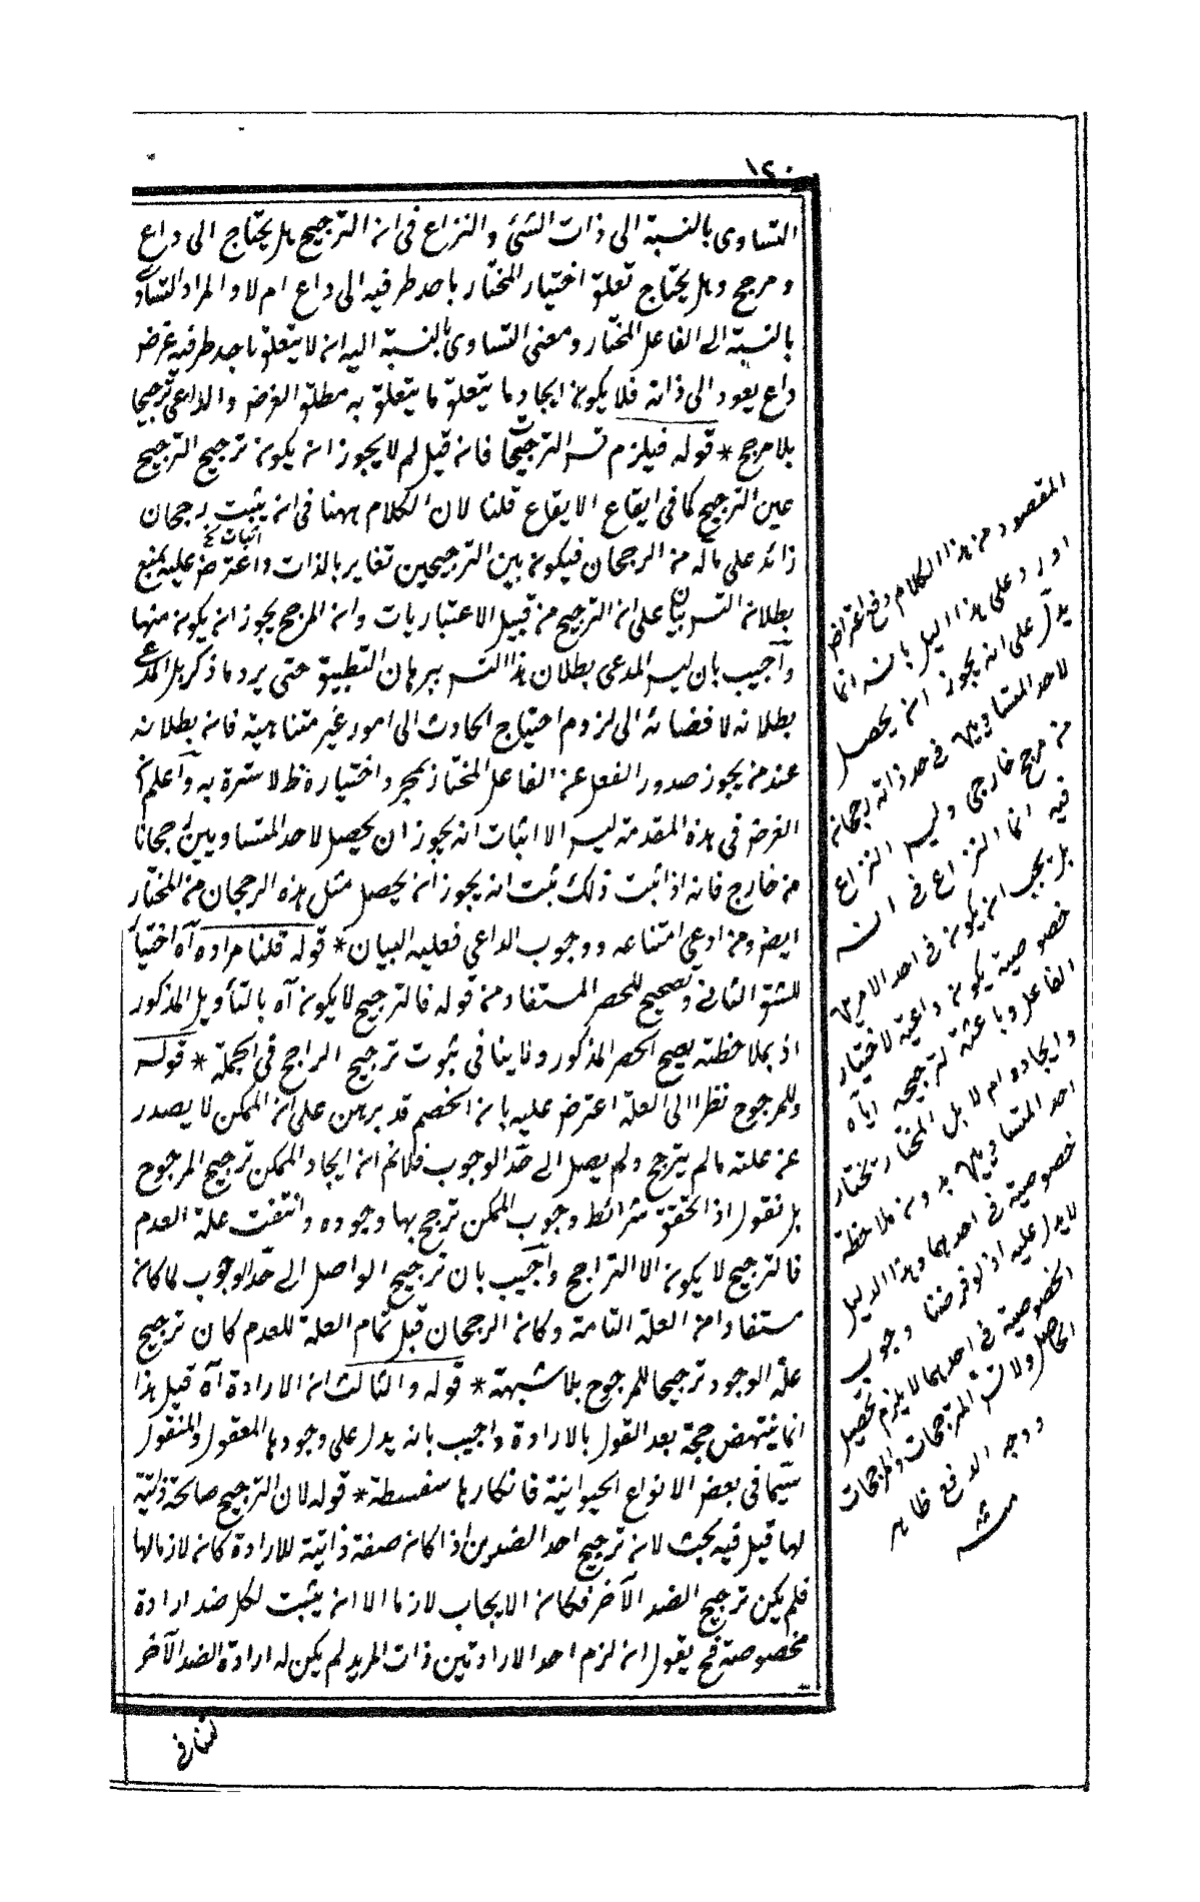 ١٢٠
التساوى بالنسبة الى ذات الشئ والنزاع فى ان الترجيح هل يحتاج الى داع
ومرجح وهل يحتاج تعلق اختيار المختار باحد طرفيه الى داع ام لا والمراد التساوى
بالنسبة الى الفاعل المختار ومعنى التساوى بالنسبة اليه ان لا يتعلق باحد طرفيه غرض
داع يعود الى ذاته فلا يكون ايجاد ما يتعلق ما يتعلق به مطلق الغرض والداعى ترجيحا
بلا مرجح * قوله فيلزم تس الترجيحات فان قيل لم لا يجوز ان يكون ترجيح الترجيح
عين الترجيح كما فى ايقاع الايقاع قلنا لان الكلام ههنا فى ان يثبت رجحان
اثبات
زائد على ماله من الرجحان فيكون بين الترجيحين تغاير بالذات واعترض عليه بمنع
بطلان التس بناء على ان الترجيح من قبيل الاعتباريات وان المرجح يجوز ان يكون منها
وأجيب بان ليس المدعى بطلان هذا التس ببرهان التطبيق حتى يرد ما ذكر بل المدعى
بطلانه لافضائه الى لزوم احتياج الحادث الى امور غير متناهية فان بطلانه
عند من يجوز صدور الفعل عن الفاعل المختار بمجرد اختياره ظ لا سترة به وأعلم ان
الغرض فى هذه المقدمة ليس الا اثبات انه يجوز ان يحصل لاحد المتساويين رجحانا
من خارج فانه اذا ثبت ذلك ثبت انه يجوز ان يحصل مثل هذه الرجحان من المختار
ايض ومن ادعى امتناعه ووجوب الداعي فعليه البيان * قوله قلنا مراده آه اختيار
للشق الثانى وتصحيح للحصر المستفاد من قوله فالترجيح لا يكون آه بالتأويل المذكور
اذ بملاحظته يصح الحصر المذكور ولا ينافى ثبوت ترجيح الراجح فى الجملة * قوله
وللمرجوح نظرا الى العلة اعترض عليه بان الخصم قد برهن على ان الممكن لا يصدر
عن علته ما لم يترجح ولم يصل الى حد الوجوب فلا نم ان ايجاد الممكن ترجيح المرجوح
بل نقول اذا تحقق شرائط وجوب الممكن ترجح بها وجوده وانتفت علة العدم
فالترجيح لا يكون الا للراجح وأجيب بان ترجيح الواصل الى حد الوجوب لما كان
مستفادا من العلة التامة وكان الرجحان قبل تمام العلة للعدم كان ترجيح
علة الوجود ترجيحا للمرجوح بلا شبهة * قوله والثالث ان الارادة آه قيل هذا
انما ينتهض حجة بعد القول بالارادة واجيب بانه يدل على وجودها المعقول والمنقول
سيما فى بعض الانواع الحيوانية فانكارها سفسطة * قوله لان الترجيح صالحة ذاتية
لها قيل فيه بحث لان ترجيح احد الضدين اذا كان صفة ذاتية للارادة كان لازما لها
فلم يكن ترجيح الضد الآخر فكان الايجاب لازما الا ان يثبت لكل ضد ارادة
مخصوصة فح يقول ان لزم احد الارادتين ذات المريد لم يكن له ارادة الضد الآخر
المقصود من هذا الكلام دفع اعتراض
اورد على هذا الدليل بانه انما
يدل على انه يجوز ان يحصل
لاحد المتساويين فى حد ذاته رجحان
من مرجح خارجى وليس النزاع
فيه انما النزاع فى انه
هل يجب ان يكون فى احد الامرين
خصوصية يكون داعية لاختيار
الفاعل وباعثة لترجيحه اياه
وايجاده ام لا بل المختار يختار
احد المتساويين بدون ملاحظة
خصوصية فى احدهما وهذا الدليل
لا يدل عليه اذ لو فرضنا وجوب
الخصوصية فى احدهما لا يلزم تحصيل
الحاصل ولا تس المرجحات والرجحات
ووجه الدفع ظاهر
منه
لتنافى